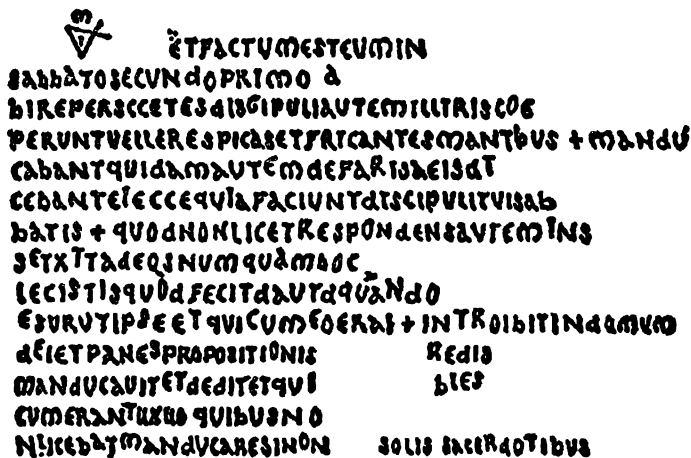 ETFACTUMESTEUMIN
SABBATOSECUNDOPRIMO A
BIREPERSCCETESDISGIPULIAUTEMILLTRISCOE
PERUNTUELLERESPICASETFRICANTESMANTBUS + MANDU
CABANTQUIDAMAUTEMDEFARISAEISDT
CEBANTEIECCEQUIAFACIUNTDTSCIPULITUISAB
BATIS + QUODNONLICETRESPONDENSAUTEMINS
SETXTTADEOSNUMQUAMHOC
LECISTISQUODFECITDAUTDQUANDO
ESURUTIPSEETQUICUMEOERAI + INTROIBITINDOMUM
DEIETPANESPROPOSITIONIS REDIS
MANDUCAUITETDEDITETQUI BLES
CUMERANTUXUO QUIBUSNO
NLICEBATMANDUCARESINON SOLIS SACERDOTIBUS